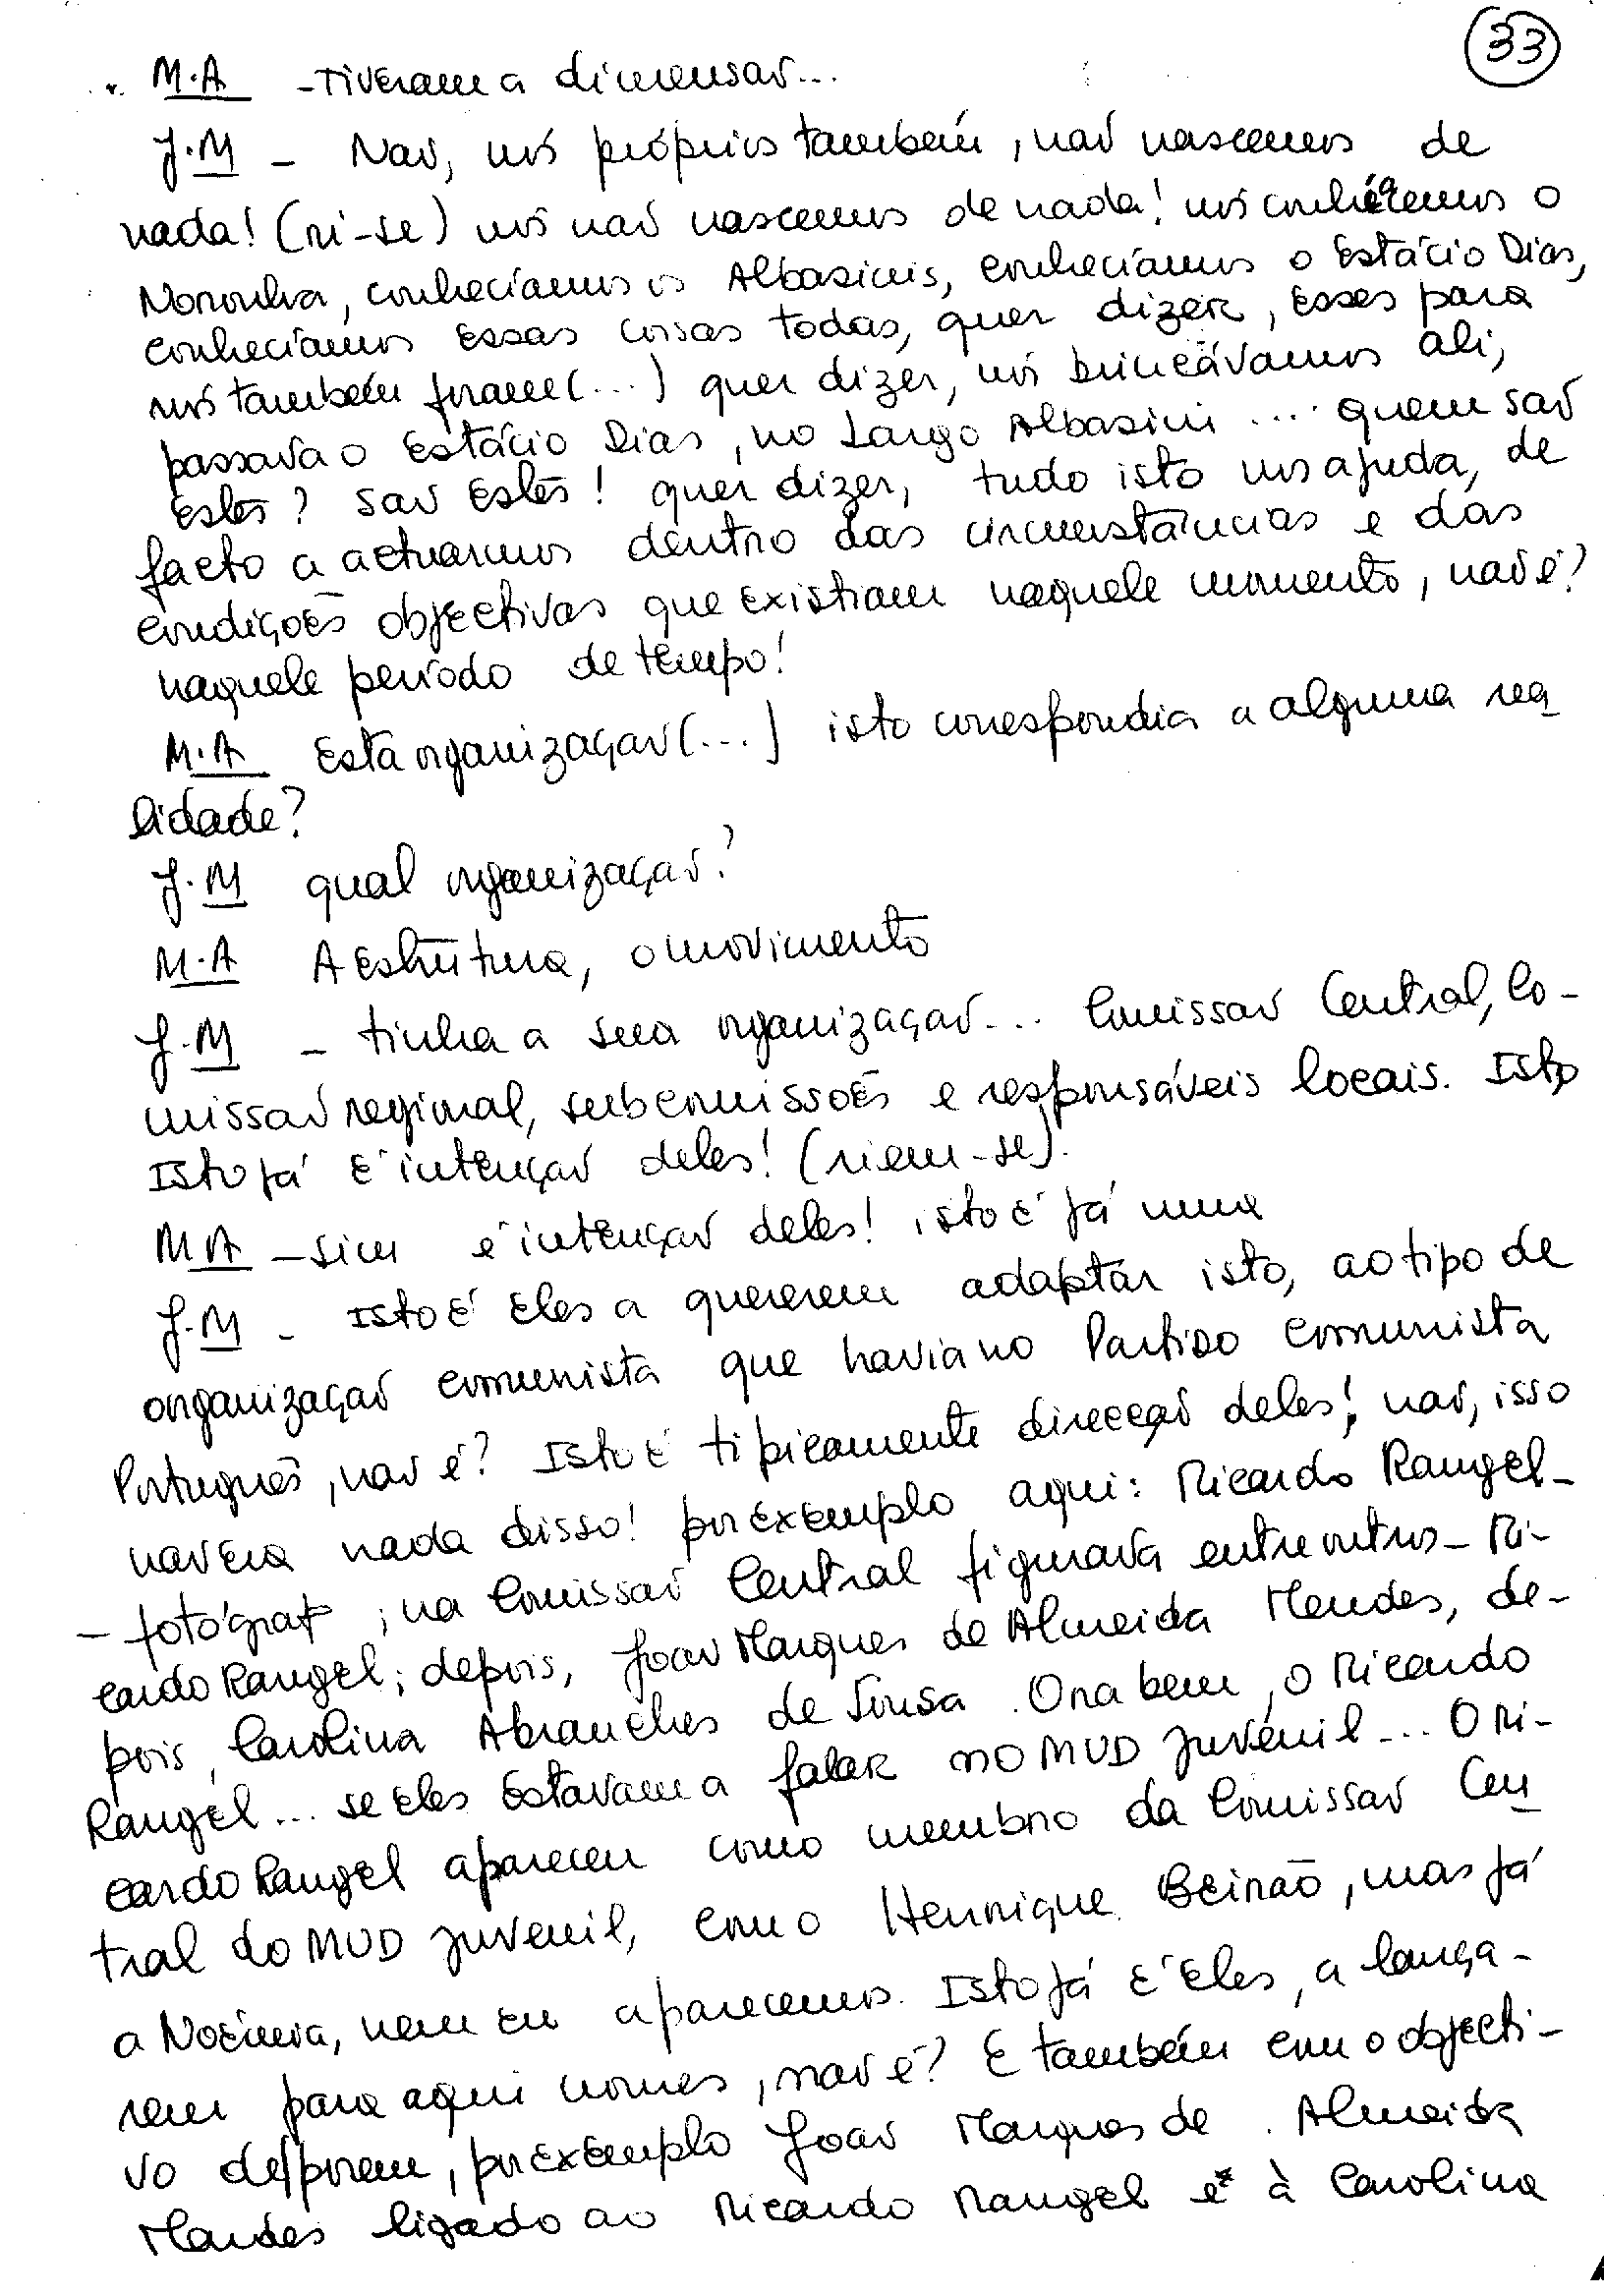 33
M.A - Tiveram a dimensão...
J.M - Não, nós próprios também, não nascemos de
nada! (ri-se) nós não nascemos de nada! nós conhecemos o
Noronha, conhecíamos os Albasinis, conhecíamos o Estácio Dias,
conhecíamos essas coisas todas, quer dizer, esses para
nós também foram (...) quer dizer, nós brincávamos ali,
passava o Estácio Dias, no Largo Albasini ... quem são
estes? são estes! quer dizer, tudo isto nos ajuda, de
facto a actuarmos dentro das circunstâncias e das
condições objectivas que existiam naquele momento, não é?
naquele período de tempo!
M.A Esta organização (...) isto correspondia a alguma rea
lidade?
J.M qual organização?
M.A A estrutura, o movimento
J.M - tinha a sua organização... Comissão Central, Co-
missão regional, subcomissões e responsáveis locais. Isto
Isto já é intenção deles! (riem-se).
M.A - sim é intenção deles! isto é já uma
J.M - Isto é eles a quererem adaptar isto, ao tipo de
organização comunista que havia no Partido comunista
Português, não é? Isto é tipicamente direcção deles! não, isso
não era nada disso! por exemplo aqui: Ricardo Rangel -
- fotógrafo; na Comissão Central figurava entre outros - Ri-
cardo Rangel; depois, João Marques de Almeida Mendes, de-
pois, Carolina Abranches de Sousa. Ora bem, o Ricardo
Rangel... se eles estavam a falar no MUD juvenil... O Ri-
cardo Rangel apareceu como membro da Comissão Cen
tral do MUD juvenil, com o Henrique Beirão, mas já
a Noémia, nem eu aparecemos. Isto já é eles, a lança-
rem para aqui nomes, não é? E também com o objecti-
vo de porem, por exemplo João Marques de Almeida
Mendes ligado ao Ricardo Rangel e à Carolina